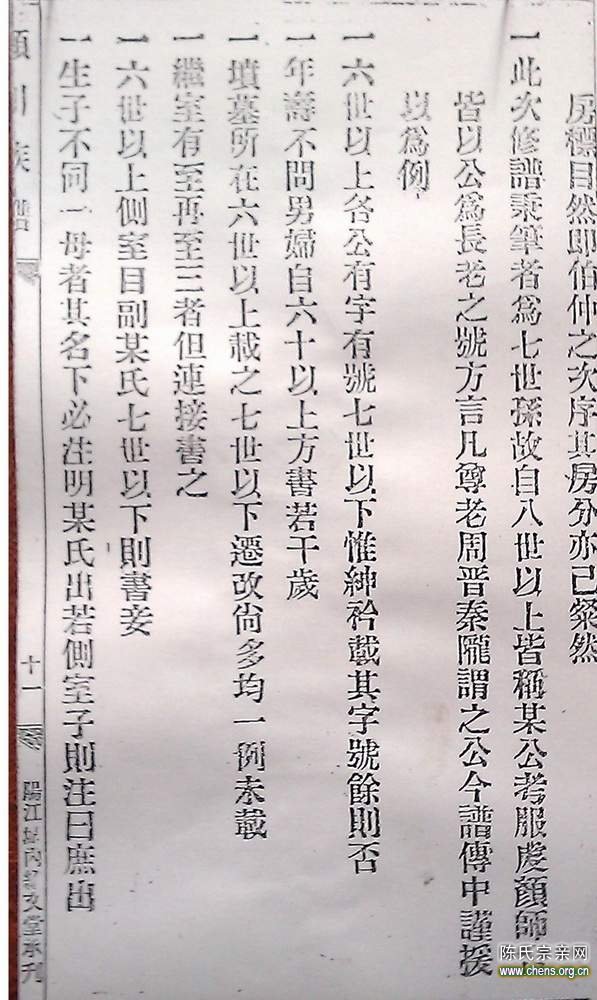 房標目然即伯仲之次序其房分亦已粲然
一此次修譜秉筆者爲七世孫故自八世以上皆稱某公考服虔顏師
皆以公爲長老之號方言凡尊老周晋秦隴謂之公今譜傳中謹援
以爲例
一六世以上各公有字有號七世以下惟紳衿載其字號餘則否
一年壽不問男婦自六十以上方書若干歲
一墳墓所在六世以上載之七世以下遷改尙多均一例未載
一繼室有至再至三者但連接書之
一六世以上側室目副某氏七世以下則書妾
一生子不同一母者其名下必注明某氏出若側室子則注曰庶出
族譜
十一
陽江 內 文堂承刊
陈氏宗亲网
www.chens.org.cn